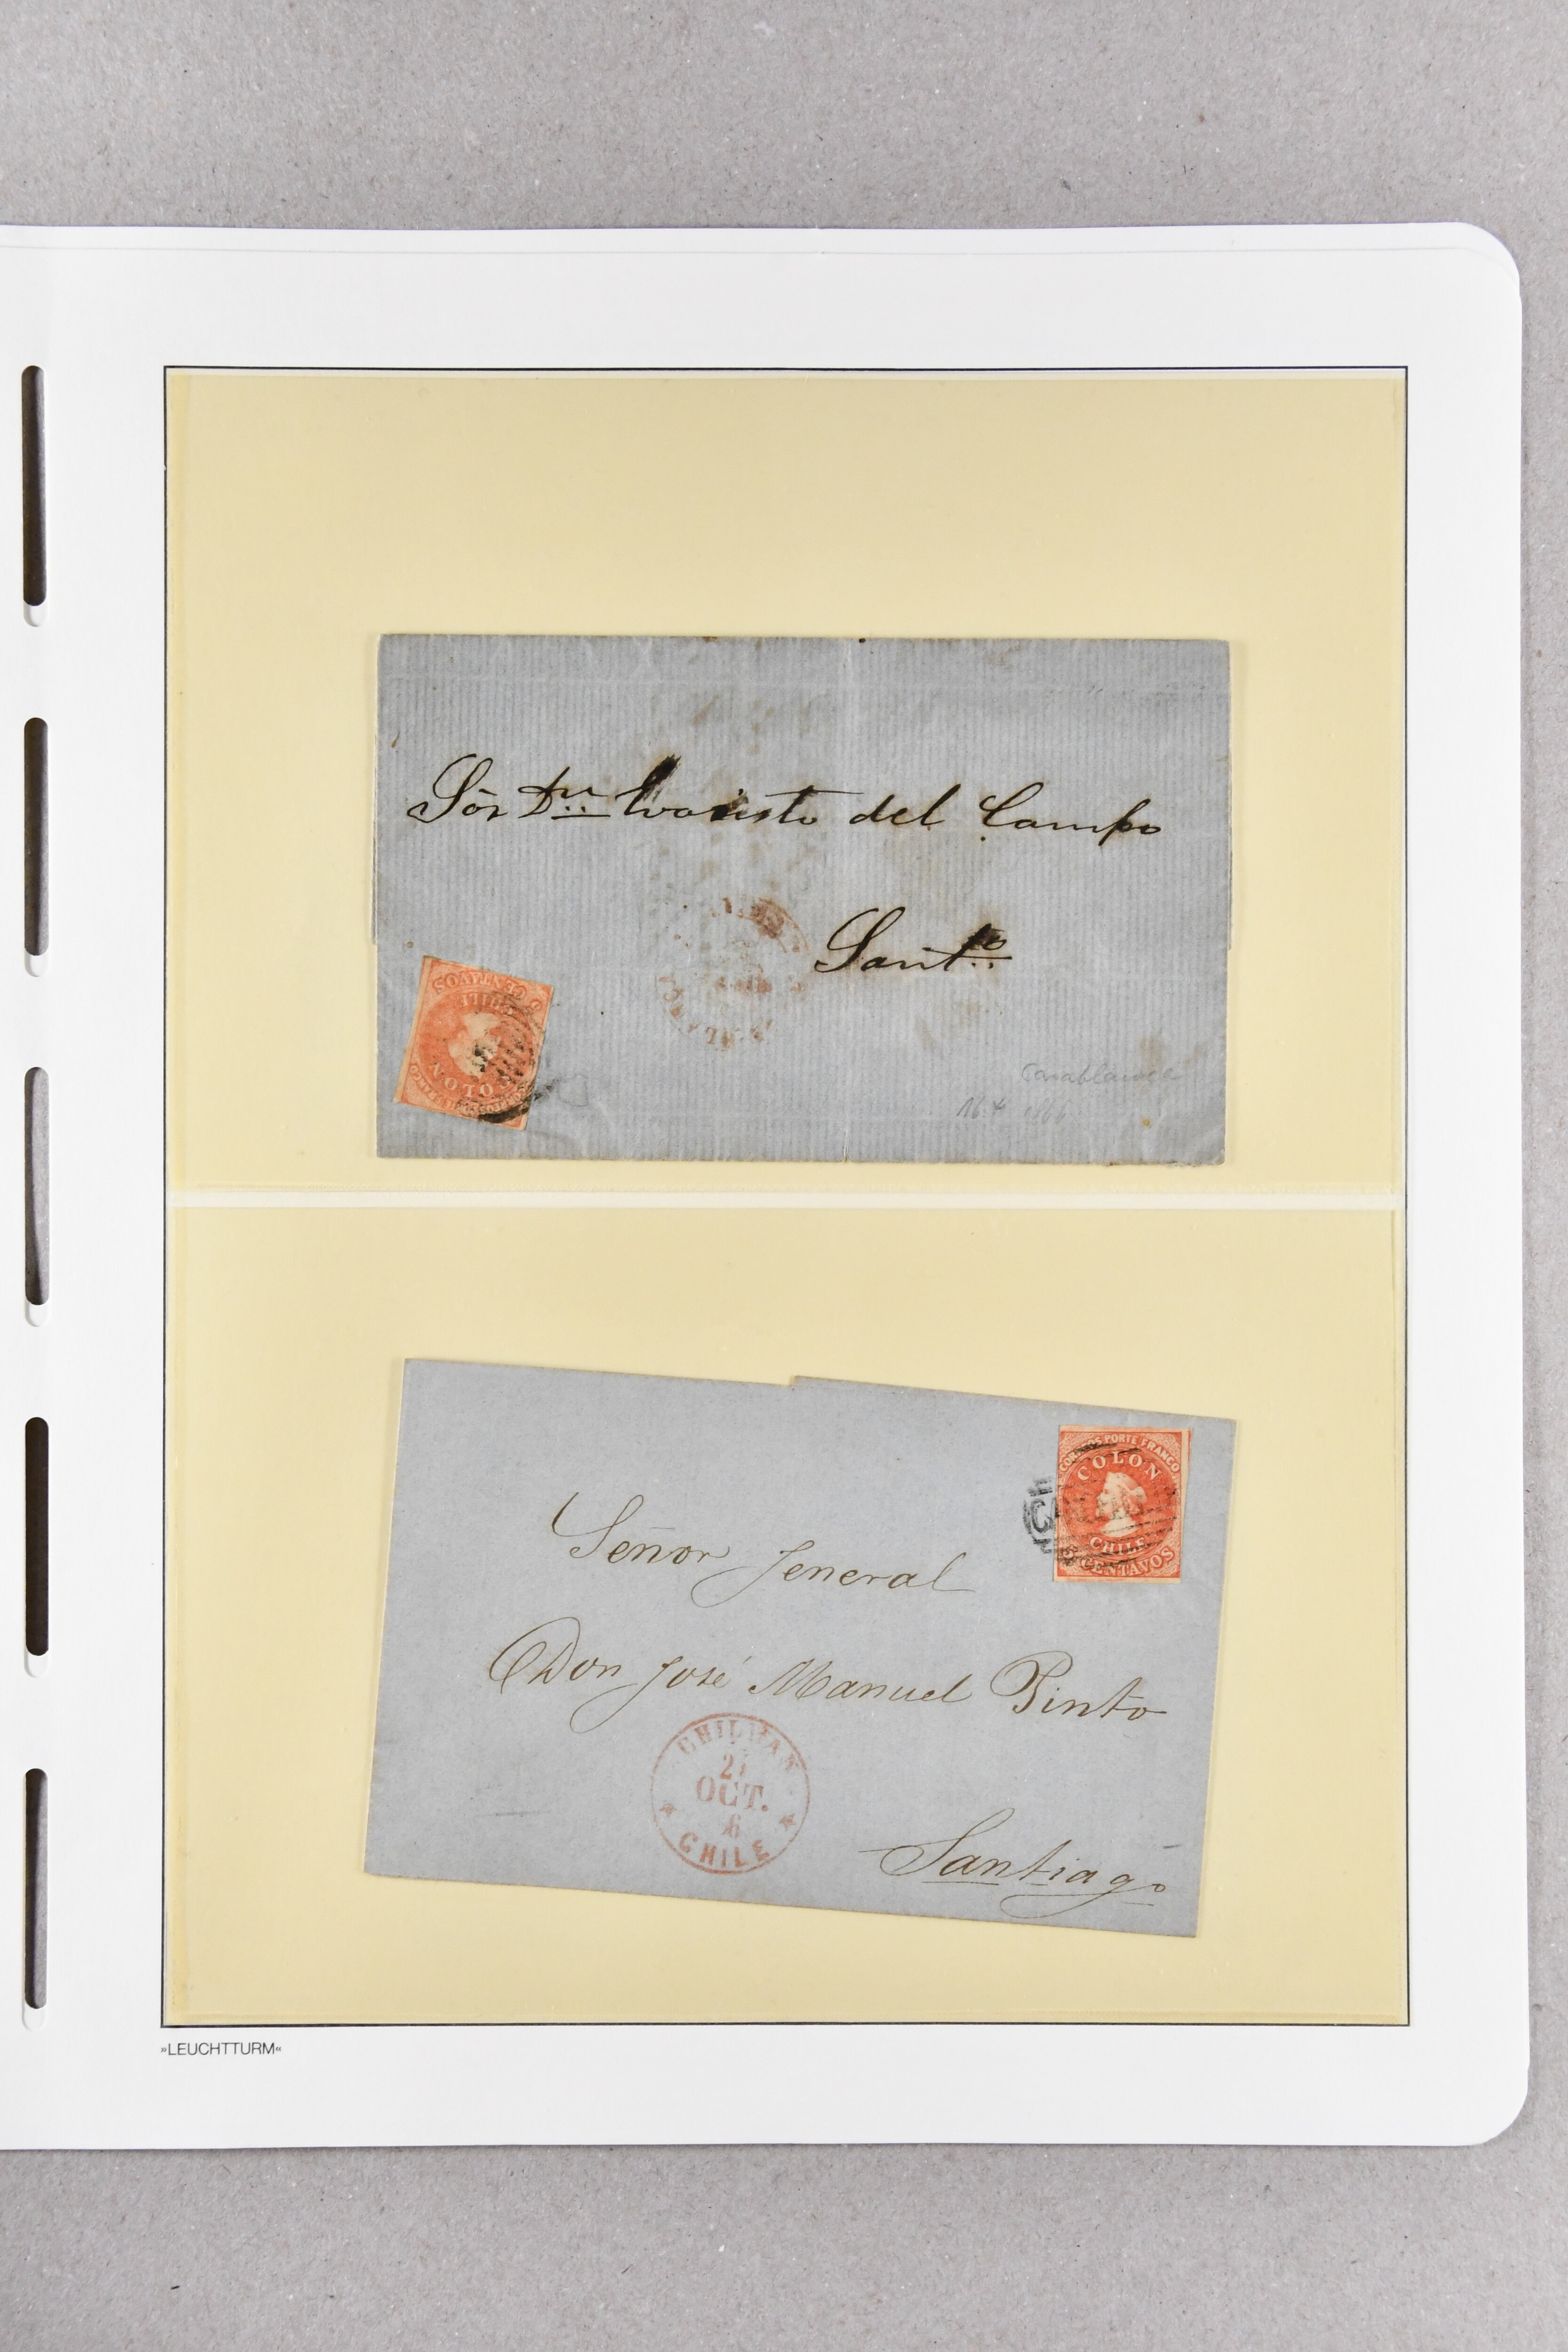 Sōr Dn Evaristo del Campo
Santo
5 CENTAVOS
CHILE
COLON
Casablanca
1866
CORREOS PORTE FRANCO
COLON
CHILE
5 CENTAVOS
Señor Jeneral
Don José Manuel Pinto
CHILLAN
OCT.
6
CHILE
Santiago
»LEUCHTTURM«